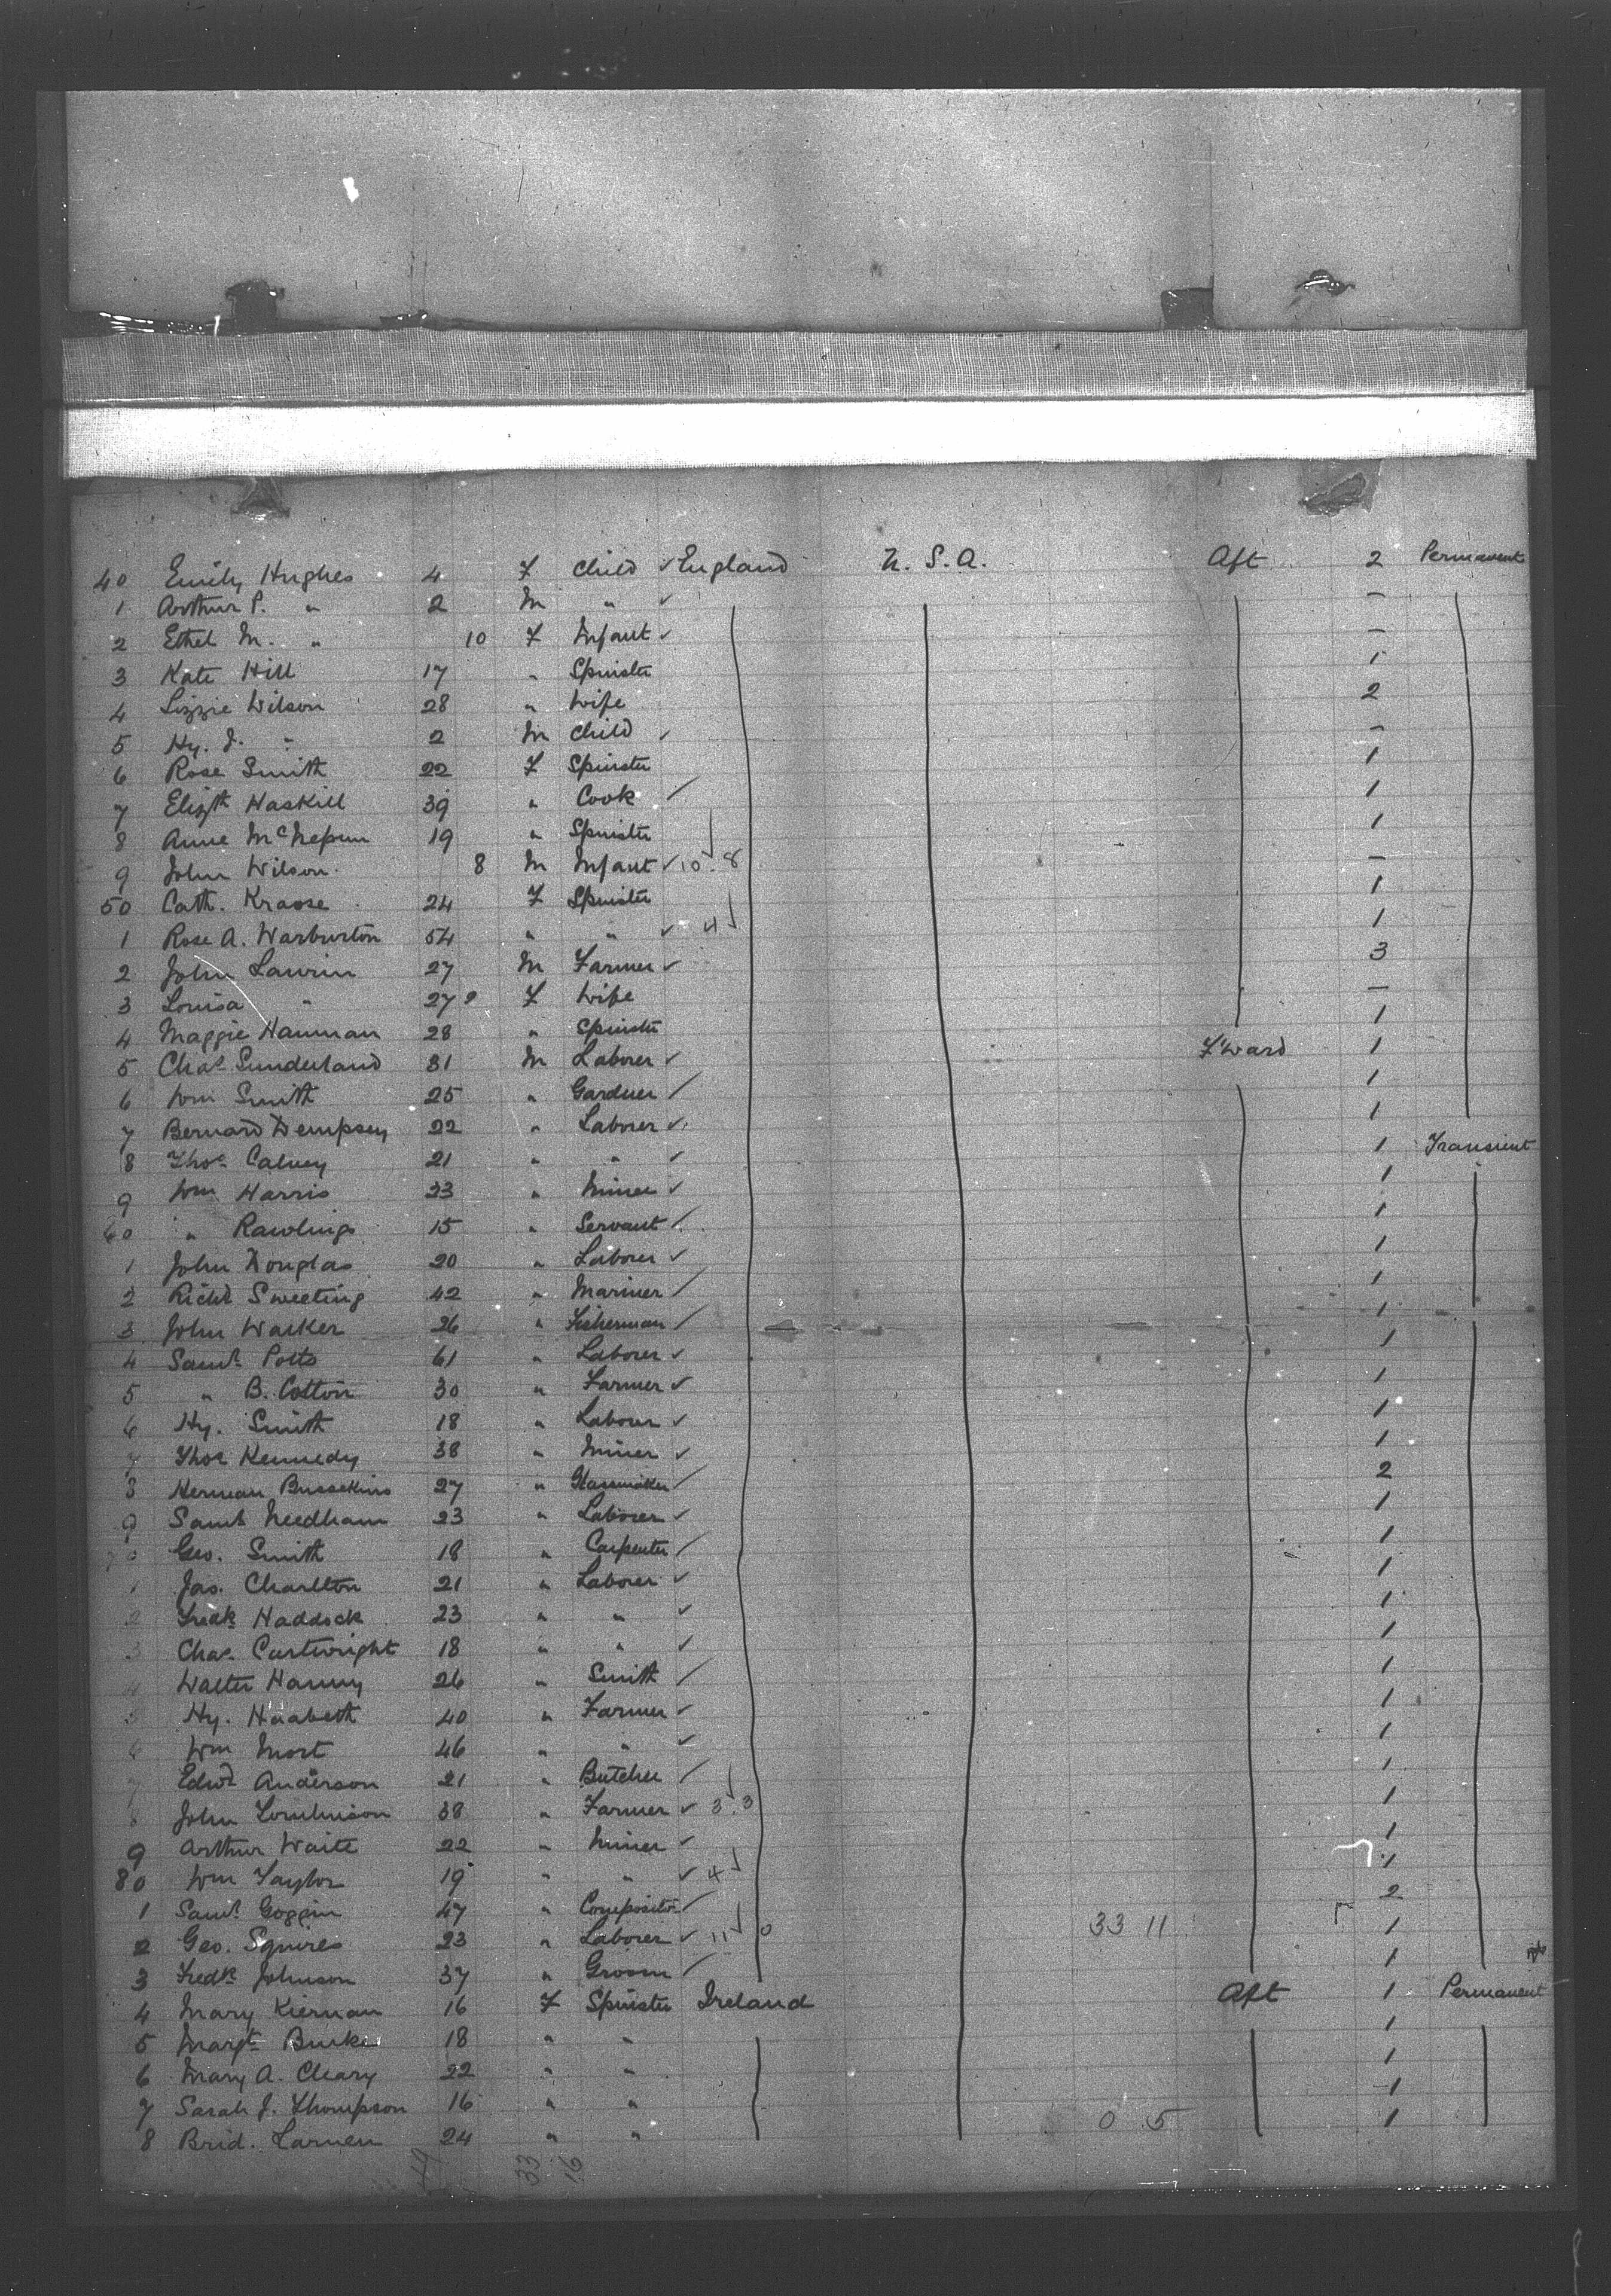 40 Emily Hughes 4 F Child ✓ England U.S.A. Aft 2 Permanent
1 Arthur P. " 2 M " ✓ –
2 Ethel M. " 10 F Infant ✓ –
3 Kate Hill 17 " Spinster 1
4 Lizzie Wilson 28 " Wife 2
5 Hy. J. " 2 M Child ✓ –
6 Rose Smith 22 F Spinster 1
7 Elizth Haskill 39 " Cook ✓ 1
8 Anne 19 " Spinster 1
9 John Wilson 8 M Infant ✓ 10 . 8 –
50 Cath. Krasse 24 F Spinster 1
1 Rose A. Warburton 54 " " ✓ 4 1
2 John Lawrin 27 M Farmer ✓ 3
3 Louisa " 27 F Wife –
4 Maggie Hannan 28 " Spinster 1
5 Chas Sunderland 31 M Laborer ✓ F'ward 1
6 Wm Smith 25 " Gardner ✓ 1
7 Bernard Dempsey 22 " Laborer ✓ 1
8 Thos Calvey 21 " " ✓ 1 Transient
9 Wm Harris 23 " Miner ✓ 1
60 " Rawlings 15 " Servant ✓ 1
1 John Douglas 20 " Laborer ✓ 1
2 Richd Sweeting 42 " Mariner ✓ 1
3 John Walker 26 " Fisherman ✓ 1
4 Saml Potts 61 " Laborer ✓ 1
5 " B. Cotton 30 " Farmer ✓ 1
6 Hy. Smith 18 " Laborer ✓ 1
7 Thos Kennedy 38 " Miner ✓ 1
8 Herman Bussekins 27 " Glassmaker ✓ 2
9 Saml Needham 23 " Laborer ✓ 1
70 Geo. Smith 18 " Carpenter ✓ 1
1 Jas. Charlton 21 " Laborer ✓ 1
2 Fredk Haddock 23 " " ✓ 1
3 Chas. Cartwright 18 " " ✓ 1
4 Walter 26 " Smith ✓ 1
5 Hy. 40 " Farmer ✓ 1
6 Wm Mort 46 " " ✓ 1
7 Edwd Anderson 21 " Butcher ✓ 1
8 John Tomlinson 38 " Farmer ✓ 3 . 3 1
9 Arthur Waite 22 " Miner ✓ 1
80 Wm Taylor 19 " " ✓ 4 1
1 Saml Goggin 47 " Compositor ✓ 2
2 Geo. Squires 23 " Laborer ✓ 11 0 33 11 1
3 Fredk Johnson 37 " Groom ✓ 1
4 Mary Kiernan 16 F Spinster Ireland Aft 1 Permanent
5 Margt Burke 18 " " 1
6 Mary A. Cleary 22 " " 1
7 Sarah J. Thompson 16 " " 0 5 1
8 Brid. Larnen 24 " " 1
49 33 16